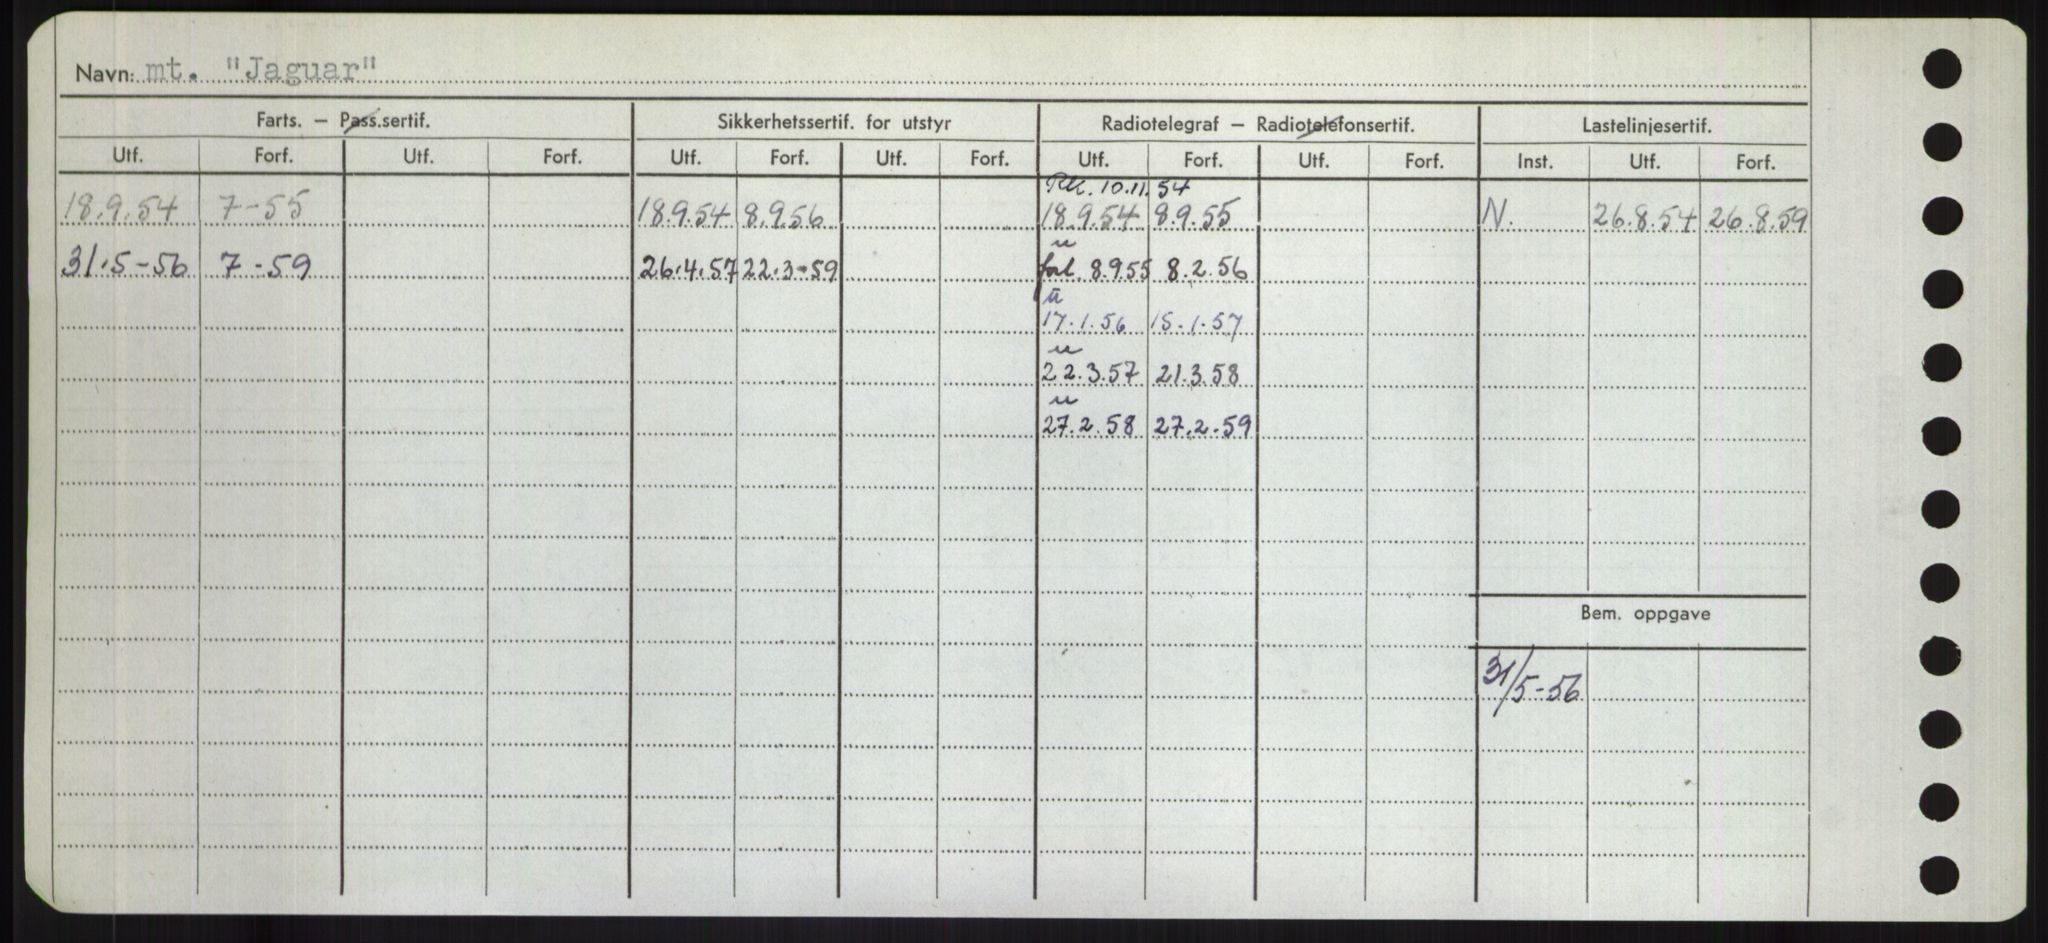 Navn: mt. "Jaguar"
Farts. – Pass.sertif. Sikkerhetssertif. for utstyr Radiotelegraf – Radiotelefonsertif. Lastelinjesertif.
Utf. Forf. Utf. Forf. Utf. Forf. Utf. Forf. Utf. Forf. Utf. Forf. Inst. Utf. Forf.
10.11.54
18.9.54 7-55 18.9.54 8.9.56 18.9.54 8.9.55 N. 26.8.54 26.8.59
u
31.5-56 7-59 26.4.57 22.3-59 forl. 8.9.55 8.2.56
u
17.1.56 15.1.57
u
22.3.57 21.3.58
u
27.2.58 27.2.59
Bem. oppgave
31/5-56